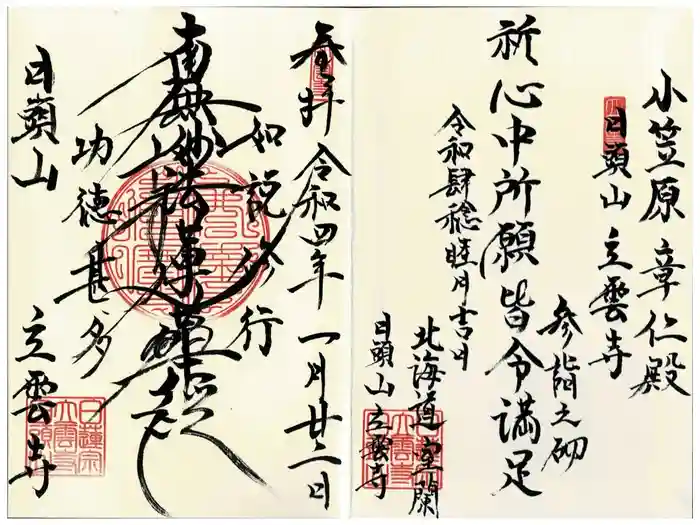 小笠原章仁殿
日頭山 立雲寺
参詣之砌
祈心中所願皆令満足
令和肆稔睦月吉日
北海道室蘭
日頭山 立雲寺
奉拝 令和四年一月廿二日
如説修行
南無妙法蓮華経
功徳甚多
日頭山 立雲寺
日蓮宗